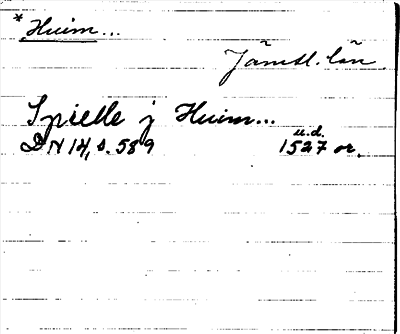 * Huim...
Jämtl. län
Spielle j Huim...
u.d.
DN 14, s. 589 1527 or.